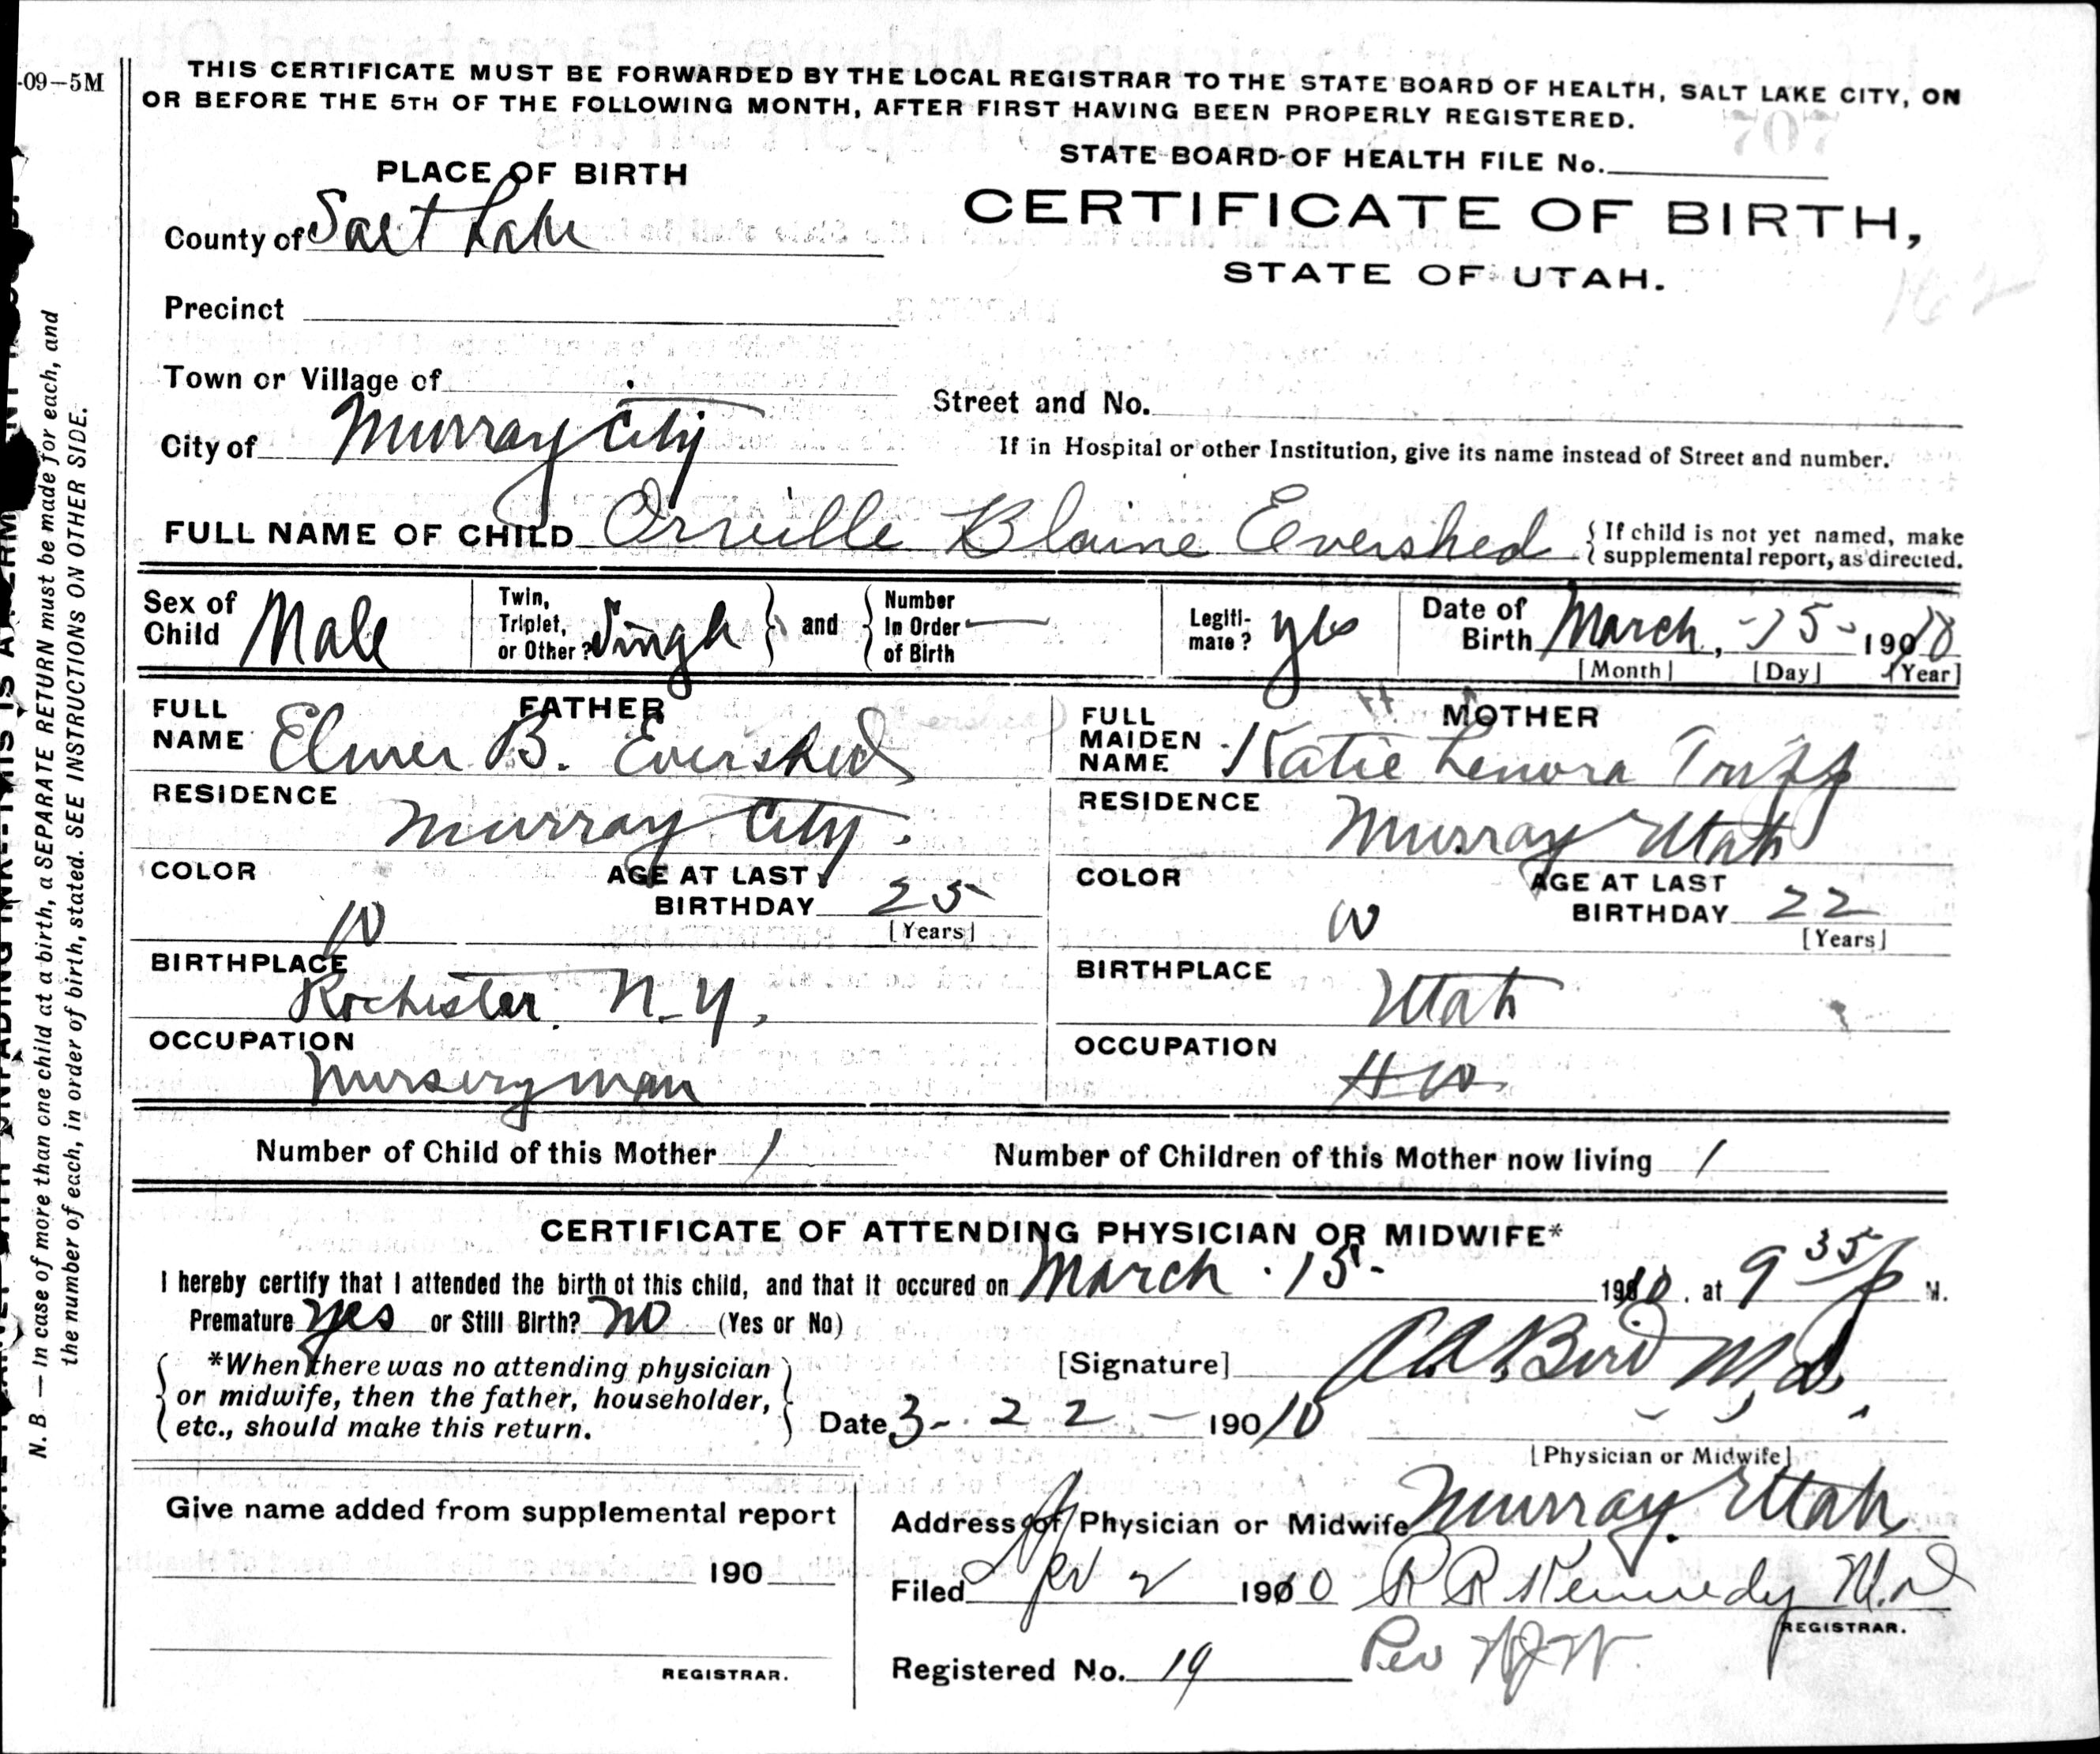 -09-5M
THIS CERTIFICATE MUST BE FORWARDED BY THE LOCAL REGISTRAR TO THE STATE BOARD OF HEALTH, SALT LAKE CITY, ON
OR BEFORE THE 5TH OF THE FOLLOWING MONTH, AFTER FIRST HAVING BEEN PROPERLY REGISTERED.
STATE BOARD OF HEALTH FILE No.
PLACE OF BIRTH
CERTIFICATE OF BIRTH,
STATE OF UTAH.
County of Salt Lake
Precinct
Town or Village of
Street and No.
City of Murray City
If in Hospital or other Institution, give its name instead of Street and number.
FULL NAME OF CHILD Orville Blaine Evershed { If child is not yet named, make
supplemental report, as directed.
Sex of Child Male
Twin, Triplet, or Other? Single } and { Number In Order of Birth —
Legiti-mate? yes
Date of Birth March, -15- 1910
[Month] [Day] [Year]
FATHER
FULL NAME Elmer B. Evershed
RESIDENCE Murray City.
COLOR W
AGE AT LAST BIRTHDAY 25
[Years]
BIRTHPLACE Rochester. N-Y,
OCCUPATION Nurseryman
MOTHER
FULL MAIDEN NAME Katie Lenora Tripp
RESIDENCE Murray Utah
COLOR W
AGE AT LAST BIRTHDAY 22
[Years]
BIRTHPLACE Utah
OCCUPATION H W.
Number of Child of this Mother 1
Number of Children of this Mother now living 1
CERTIFICATE OF ATTENDING PHYSICIAN OR MIDWIFE*
I hereby certify that I attended the birth of this child, and that it occured on March 15- 1910. at 9 35 P M.
Premature yes or Still Birth? No (Yes or No)
{ *When there was no attending physician
or midwife, then the father, householder,
etc., should make this return. }
[Signature] Bird M.D.
Date 3-22- 1910
[Physician or Midwife]
Give name added from supplemental report
190
REGISTRAR.
Address of Physician or Midwife Murray Utah
Filed Apr 2 1910 R R Kennedy M.D
REGISTRAR.
Registered No. 19
N. B — In case of more than one child at a birth, a SEPARATE RETURN must be made for each, and
the number of each, in order of birth, stated. SEE INSTRUCTIONS ON OTHER SIDE.